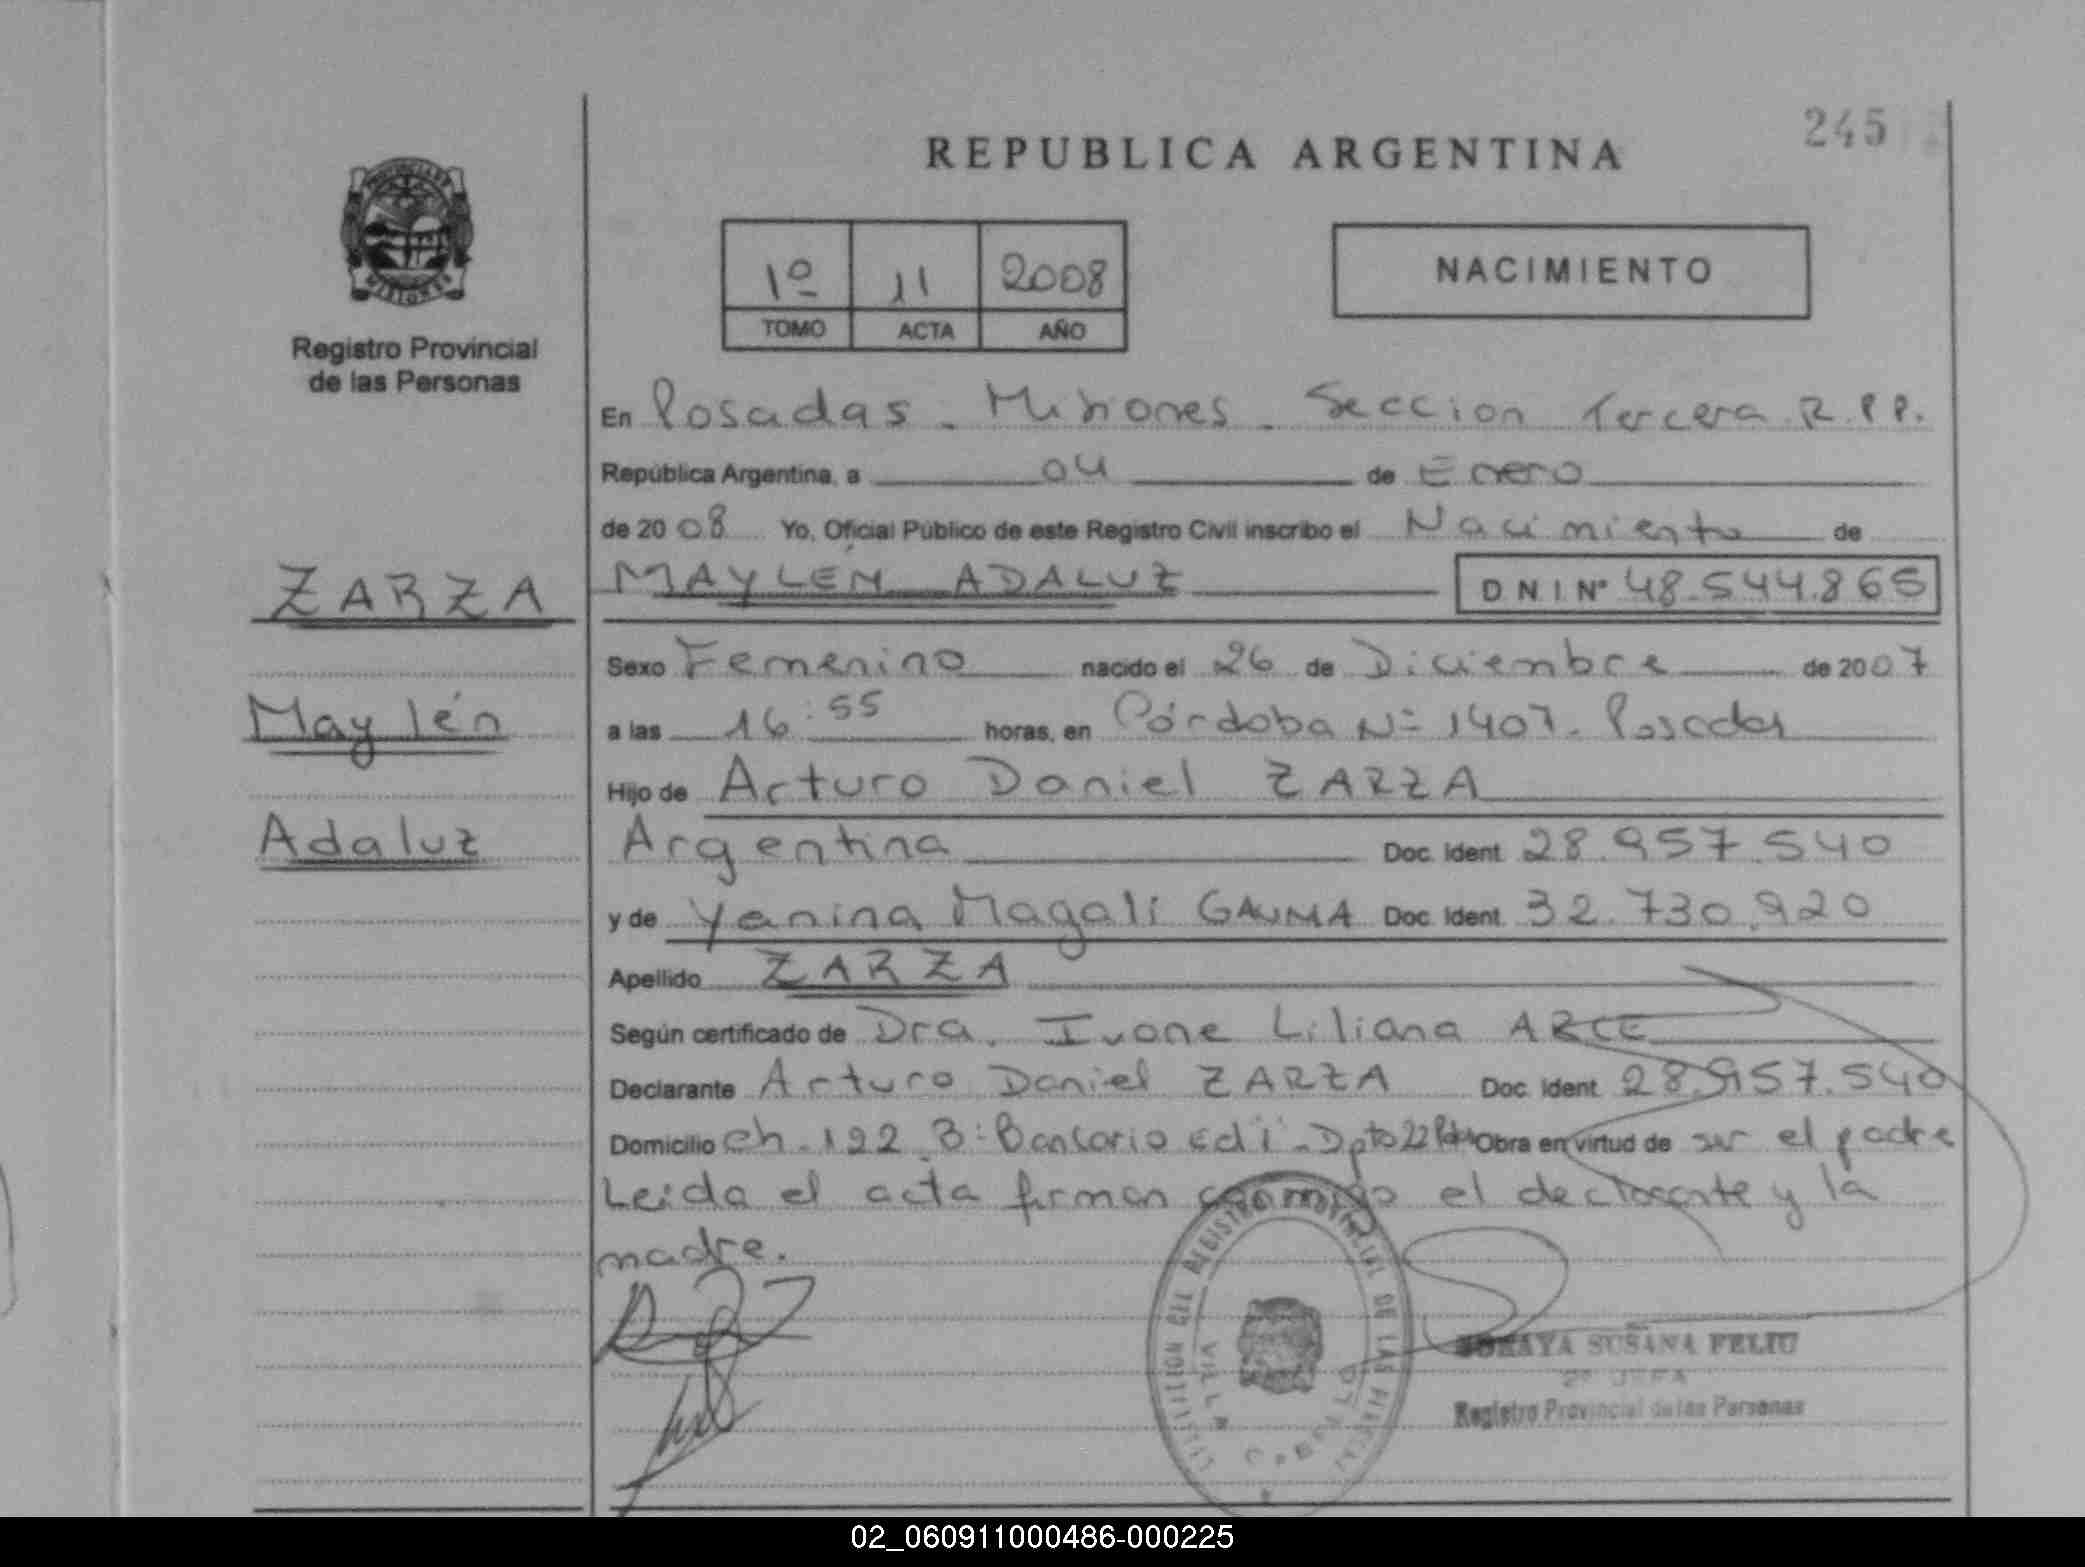 245
REPUBLICA ARGENTINA
PROVINCIA DE
MISIONES
Registro Provincial
de las Personas
1º 11 2008
TOMO ACTA AÑO
NACIMIENTO
En Posadas - Misiones - Seccion Tercera R.P.P.
República Argentina, a 04 de Enero
de 2008 Yo, Oficial Público de este Registro Civil inscribo el Nacimiento de
ZARZA
MAYLÉN ADALUZ DNI Nº 48.544.865
Sexo Femenino nacido el 26 de Diciembre de 2007
Maylén
a las 16:55 horas, en Córdoba Nº 1407 - Posadas
Hijo de Arturo Daniel ZARZA
Adaluz
Argentina Doc. Ident. 28.957.540
y de Yanina Magalí GAUMA Doc. Ident. 32.730.920
Apellido ZARZA
Según certificado de Dra. Ivone Liliana ARCE
Declarante Arturo Daniel ZARZA Doc. Ident. 28.957.540
Domicilio Ch. 122 Bº Bancario Edi - Dpto 22 Obra en virtud de ser el padre
Leida el acta firman conmigo el declarante y la
madre.
REGISTRO PROVINCIAL DE LAS
SORAYA SUSANA FELIU
2º JEFA
Registro Provincial de las Personas
02_060911000486-000225